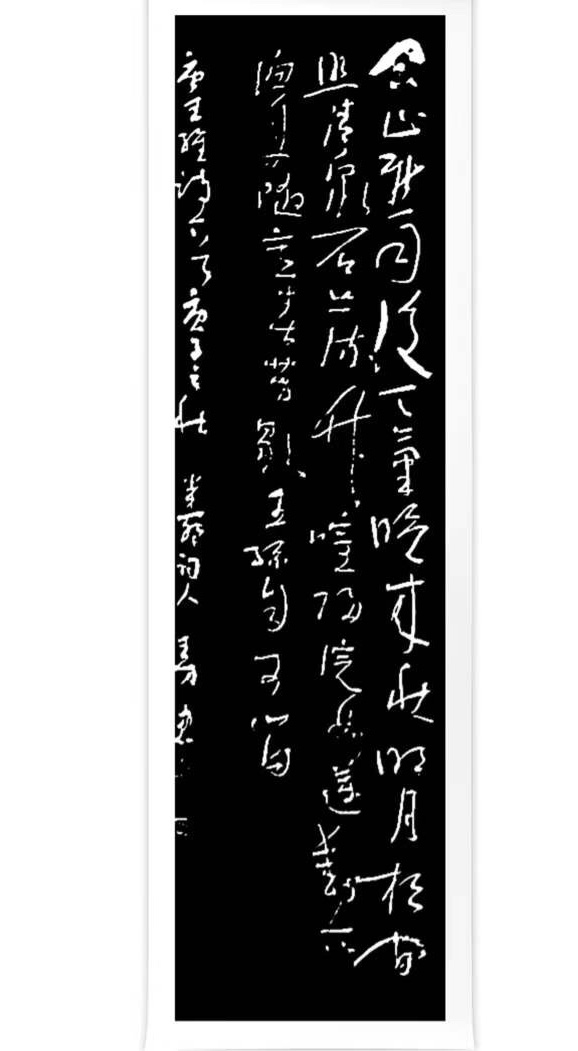 空山新雨後天氣晚來秋明月松間
照清泉石上流竹喧歸浣女蓮動下
漁舟隨意春芳歇王孫自可留
唐王維詩一首庚子之秋 人 馬